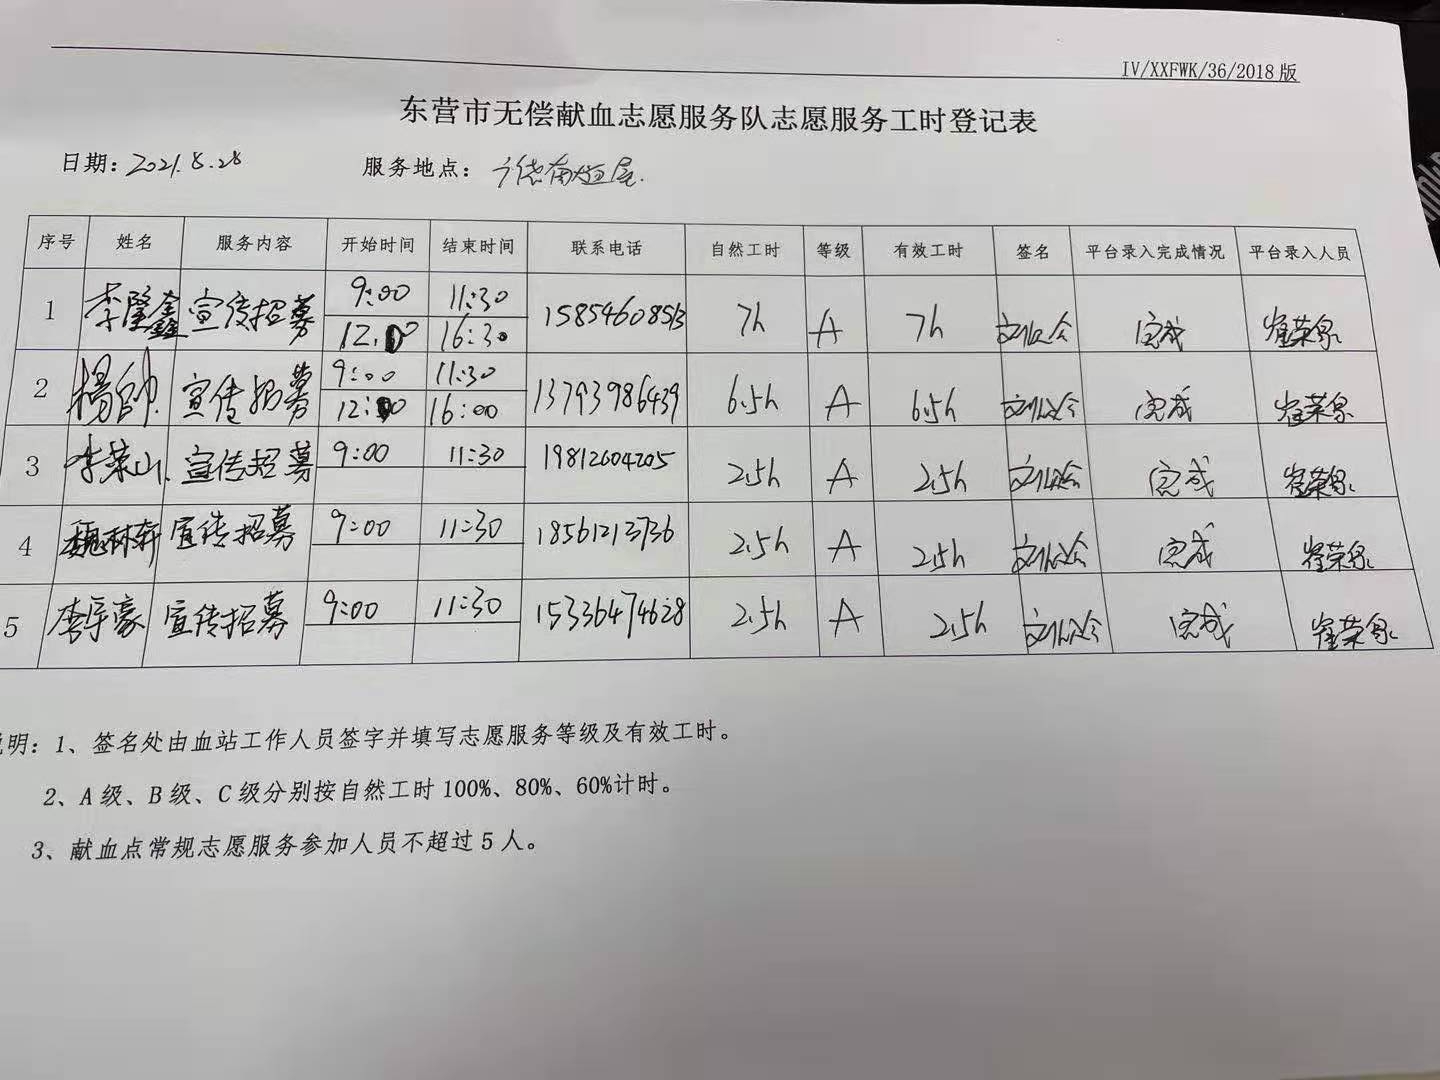 IV/XXFWK/36/2018版
东营市无偿献血志愿服务队志愿服务工时登记表
日期：2021.8.28 服务地点：广饶献血屋.
序号 姓名 服务内容 开始时间 结束时间 联系电话 自然工时 等级 有效工时 签名 平台录入完成情况 平台录入人员
1 李隆鑫 宣传招募 9:00 11:30 15854608513 7h A 7h 完成 崔荣泉
12:00 16:30
2 杨帅 宣传招募 9:00 11:30 13793986439 6.5h A 6.5h 完成 崔荣泉
12:00 16:00
3 李荣山 宣传招募 9:00 11:30 19812604205 2.5h A 2.5h 完成 崔荣泉
4 魏林轩 宣传招募 9:00 11:30 18561213736 2.5h A 2.5h 完成 崔荣泉
5 李宇豪 宣传招募 9:00 11:30 15336474628 2.5h A 2.5h 完成 崔荣泉
明：1、签名处由血站工作人员签字并填写志愿服务等级及有效工时。
2、A级、B级、C级分别按自然工时100%、80%、60%计时。
3、献血点常规志愿服务参加人员不超过5人。